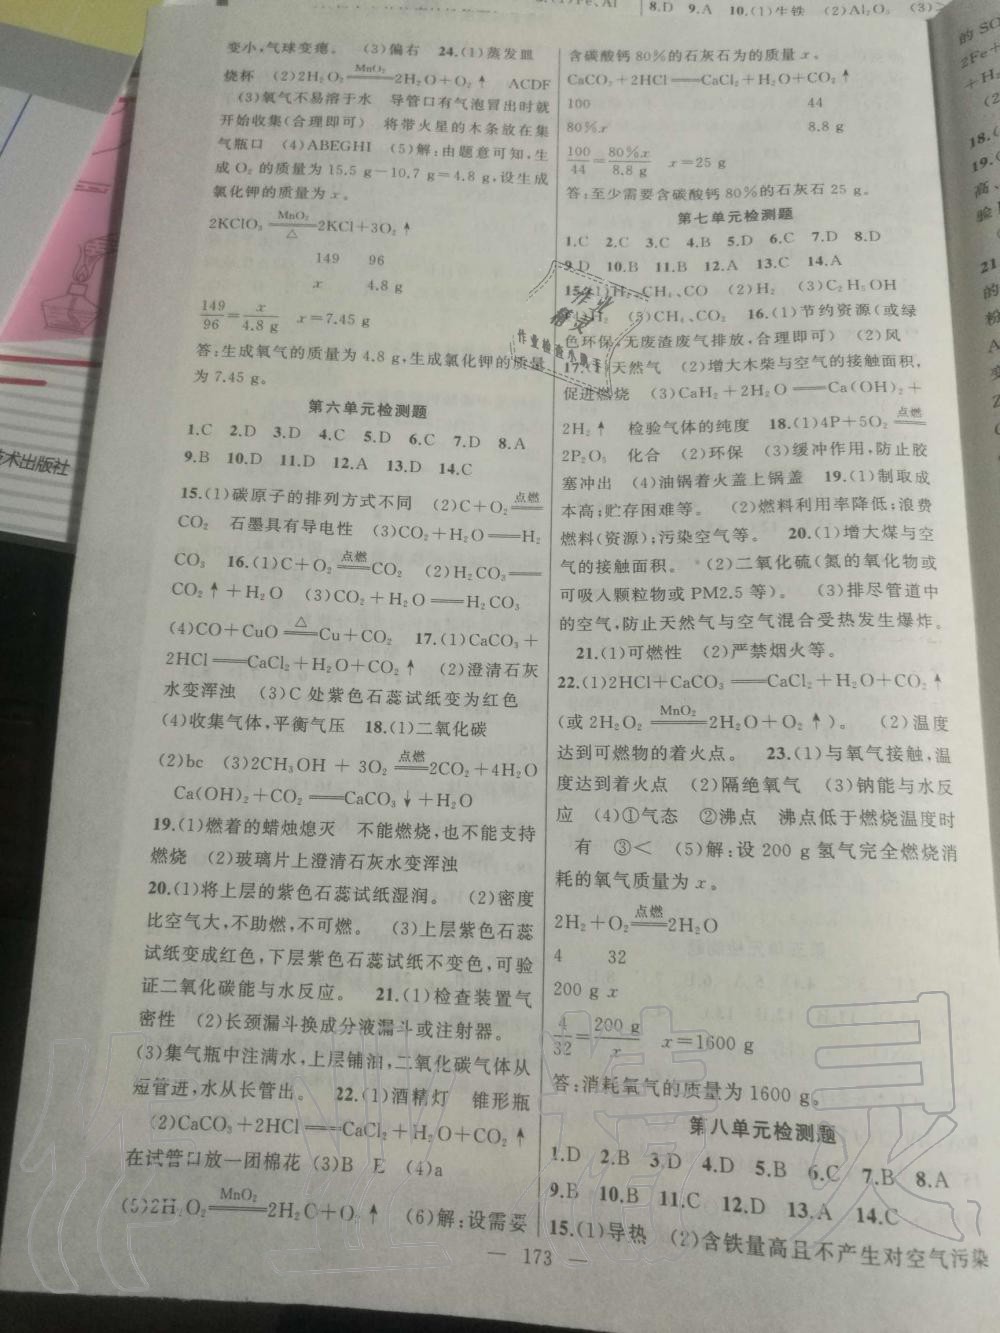 8.D 9.A 10.(1)生铁 (2)Al₂O₃
变小,气球变瘪。 (3)偏右 24.(1)蒸发皿
烧杯 (2)2H₂O₂ =MnO₂= 2H₂O+O₂↑ ACDF
(3)氧气不易溶于水 导管口有气泡冒出时就
开始收集(合理即可) 将带火星的木条放在集
气瓶口 (4)ABEGHI (5)解:由题意可知,生
成 O₂ 的质量为 15.5 g-10.7 g=4.8 g,设生成
氯化钾的质量为 x。
2KClO₃ =MnO₂/△= 2KCl+3O₂↑
149 96
x 4.8 g
149/96=x/4.8 g x=7.45 g
答:生成氧气的质量为 4.8 g,生成氯化钾的质量
为 7.45 g。
第六单元检测题
1.C 2.D 3.D 4.C 5.D 6.C 7.D 8.A
9.B 10.D 11.D 12.A 13.D 14.C
15.(1)碳原子的排列方式不同 (2)C+O₂ =点燃=
CO₂ 石墨具有导电性 (3)CO₂+H₂O══H₂
CO₃ 16.(1)C+O₂ =点燃= CO₂ (2)H₂CO₃══
CO₂↑+H₂O (3)CO₂+H₂O══H₂CO₃
(4)CO+CuO =△= Cu+CO₂ 17.(1)CaCO₃+
2HCl══CaCl₂+H₂O+CO₂↑ (2)澄清石灰
水变浑浊 (3)C 处紫色石蕊试纸变为红色
(4)收集气体,平衡气压 18.(1)二氧化碳
(2)bc (3)2CH₃OH + 3O₂ =点燃= 2CO₂+4H₂O
Ca(OH)₂+CO₂══CaCO₃↓+H₂O
19.(1)燃着的蜡烛熄灭 不能燃烧,也不能支持
燃烧 (2)玻璃片上澄清石灰水变浑浊
20.(1)将上层的紫色石蕊试纸湿润。 (2)密度
比空气大,不助燃、不可燃。 (3)上层紫色石蕊
试纸变成红色,下层紫色石蕊试纸不变色,可验
证二氧化碳能与水反应。 21.(1)检查装置气
密性 (2)长颈漏斗换成分液漏斗或注射器。
(3)集气瓶中注满水,上层铺油,二氧化碳气体从
短管进,水从长管出。 22.(1)酒精灯 锥形瓶
(2)CaCO₃+2HCl══CaCl₂+H₂O+CO₂↑
在试管口放一团棉花 (3)B E (4)a
(5)2H₂O₂ =MnO₂= 2H₂O+O₂↑ (6)解:设需要
含碳酸钙80%的石灰石为的质量 x。
CaCO₃+2HCl══CaCl₂+H₂O+CO₂↑
100 44
80%x 8.8 g
100/44=80%x/8.8 g x=25 g
答:至少需要含碳酸钙80%的石灰石 25 g。
第七单元检测题
1.C 2.C 3.C 4.B 5.D 6.C 7.D 8.D
9.D 10.B 11.B 12.A 13.C 14.A
15.(1)H₂、CH₄、CO (2)H₂ (3)C₂H₅OH
H₂ (5)CH₄、CO₂ 16.(1)节约资源(或绿
色环保;无废渣废气排放,合理即可) (2)风
17.(1)天然气 (2)增大木柴与空气的接触面积,
促进燃烧 (3)CaH₂+2H₂O══Ca(OH)₂+
2H₂↑ 检验气体的纯度 18.(1)4P+5O₂ =点燃=
2P₂O₅ 化合 (2)环保 (3)缓冲作用,防止胶
塞冲出 (4)油锅着火盖上锅盖 19.(1)制取成
本高;贮存困难等。 (2)燃料利用率降低;浪费
燃料(资源);污染空气等。 20.(1)增大煤与空
气的接触面积。 (2)二氧化硫(氮的氧化物或
可吸入颗粒物或 PM2.5 等)。 (3)排尽管道中
的空气,防止天然气与空气混合受热发生爆炸。
21.(1)可燃性 (2)严禁烟火等。
22.(1)2HCl+CaCO₃══CaCl₂+H₂O+CO₂↑
(或 2H₂O₂ =MnO₂= 2H₂O+O₂↑)。 (2)温度
达到可燃物的着火点。 23.(1)与氧气接触,温
度达到着火点 (2)隔绝氧气 (3)钠能与水反
应 (4)①气态 ②沸点 沸点低于燃烧温度时
有 ③< (5)解:设 200 g 氢气完全燃烧消
耗的氧气质量为 x。
2H₂+O₂ =点燃= 2H₂O
4 32
200 g x
4/32=200 g/x x=1600 g
答:消耗氧气的质量为 1600 g。
第八单元检测题
1.D 2.B 3.D 4.D 5.B 6.C 7.B 8.A
9.B 10.B 11.C 12.D 13.A 14.C
15.(1)导热 (2)含铁量高且不产生对空气污染
— 173 —
术出版社
作业
精灵
作业检查小助手
作业精灵